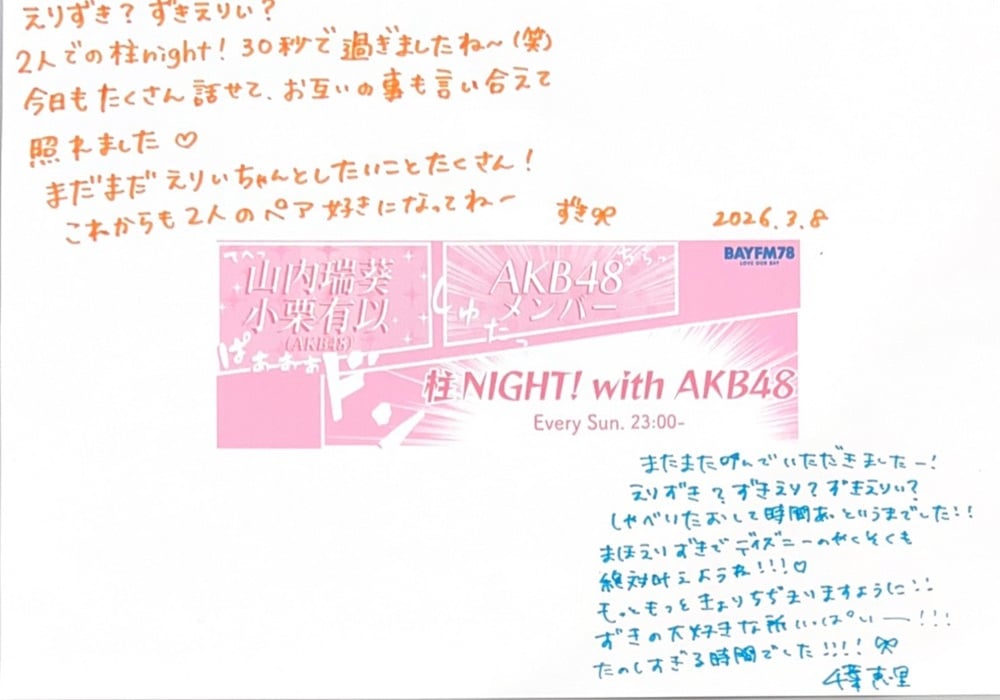 えりずき？ずきえりい？
2人での柱night！30秒で過ぎましたね〜(笑)
今日もたくさん話せて、お互いの事も言い合えて
照れました♡
まだまだえりいちゃんとしたいことたくさん！
これからも2人のペア好きになってねー
ずき
2026.3.8
てへっ
山内瑞葵
小栗有以
(AKB48)
ぱぁぁぁぁ
AKB48
メンバー
ちらっ
しゅたっ
ドーン
BAYFM78
LOVE OUR BAY
柱NIGHT! with AKB48
Every Sun. 23:00-
またまた呼んでいただきましたー！
えりずき？ずきえり？ずきえりい？
しゃべりたおして時間あっというまでした!!
まほえりずきでディズニーのやくそくも
絶対叶えようね!!!♡
もっともっときょりちぢまりますように!!
ずきの大好きな所いっぱいー!!!
たのしすぎる時間でした!!!!
千葉恵里